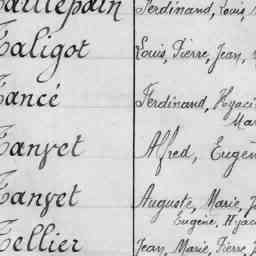 Taillepain Ferdinand, Louis,
Taligot Louis, Pierre, Jean,
Tancé Ferdinand, Hyaci
Mar
Tanyet Alfred, Eugèn
Tanyet Auguste, Marie, J
Eugène, Hyac
Tellier Jean, Marie, Pierre,